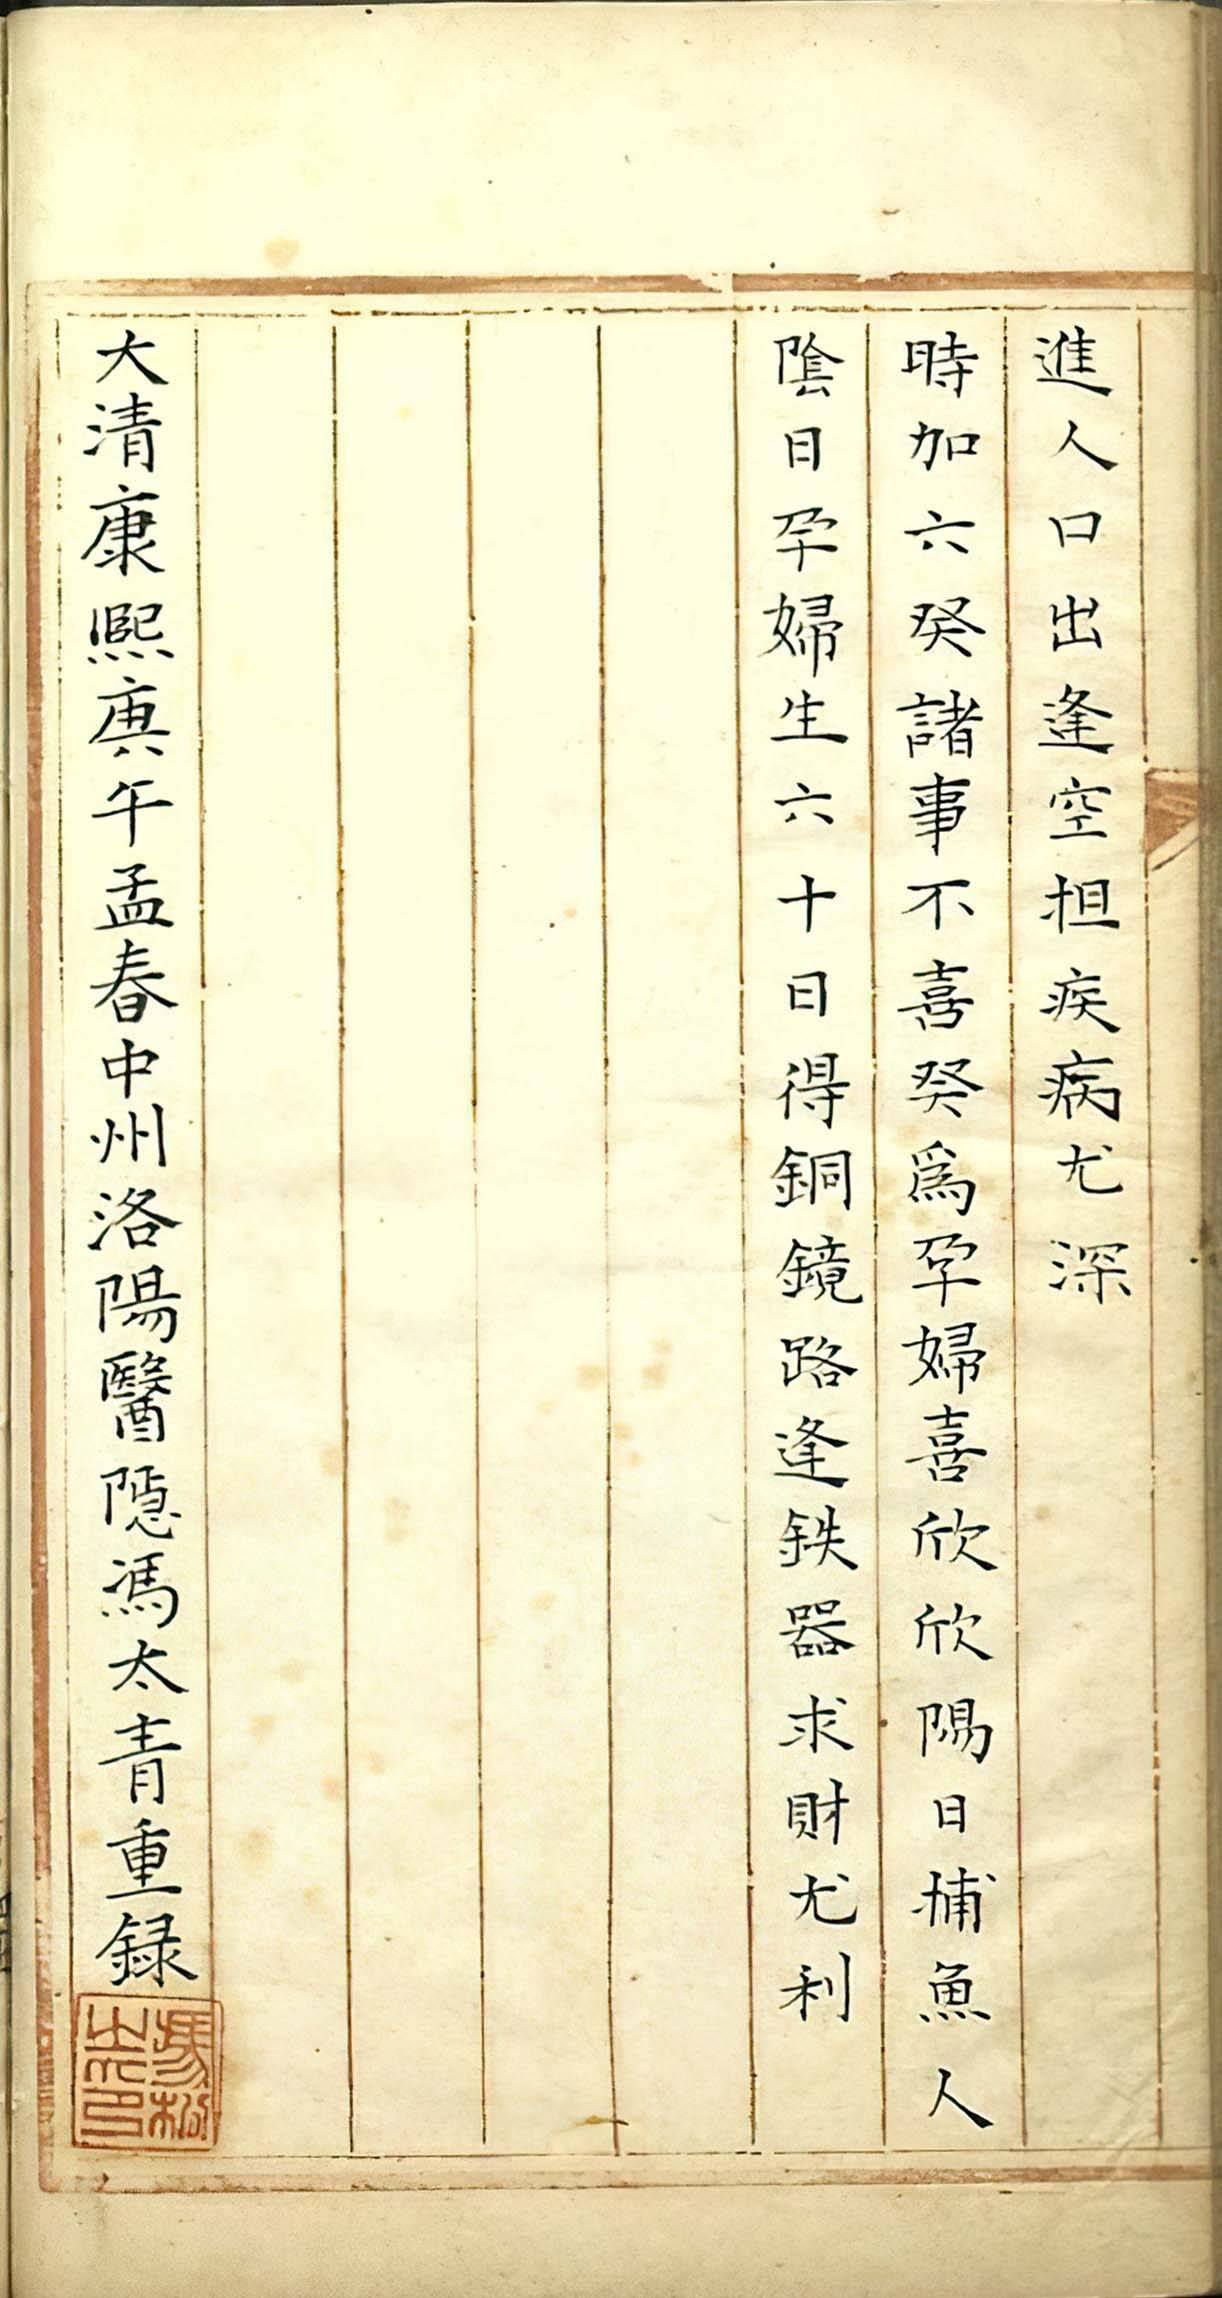 進人口出逢空担疾病尤深
時加六癸諸事不喜癸爲孕婦喜欣欣陽日捕魚人
陰日孕婦生六十日得銅鏡路逢鉄器求財尤利
大清康熙庚午孟春中州洛陽醫隱馮太青重録